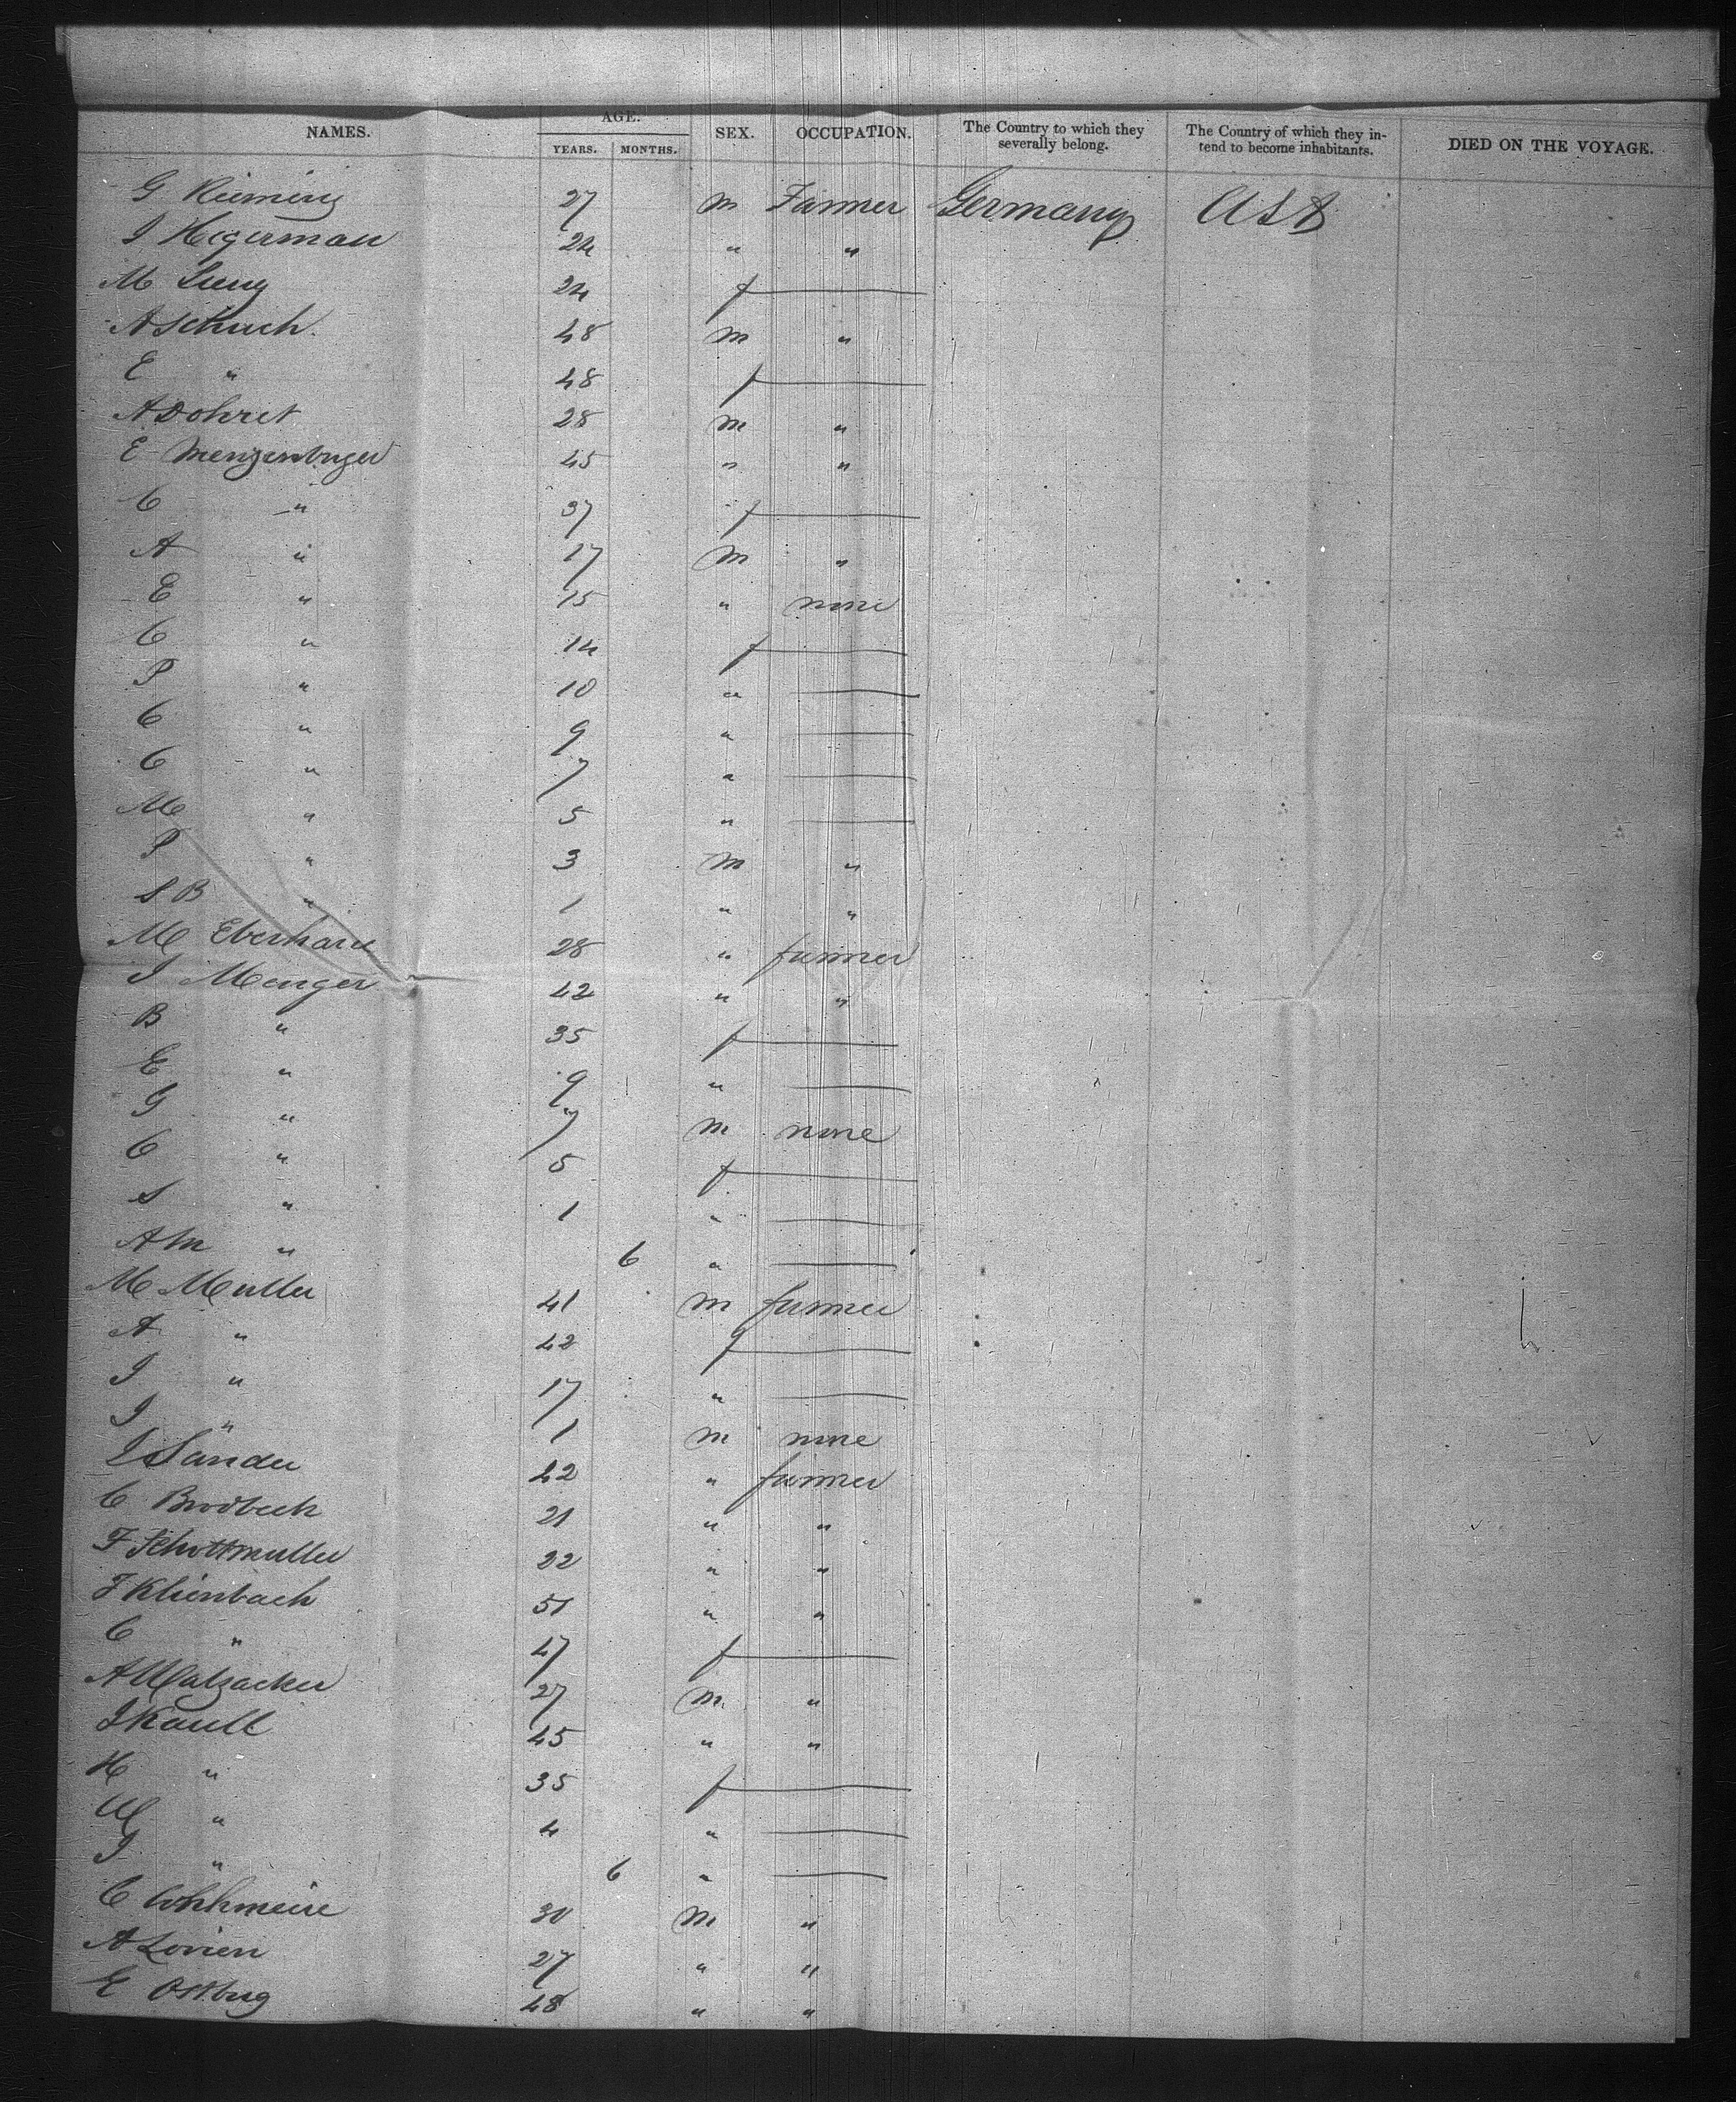 NAMES. AGE. SEX. OCCUPATION. The Country to which they severally belong. The Country of which they intend to become inhabitants. DIED ON THE VOYAGE.
YEARS. MONTHS.
G 27 m Farmer Germany USA
J Hegerman 24 " "
M 24 f —
A Schuch. 48 m "
E " 48 f —
A Dohret 28 m "
E 45 " "
C " 37 f —
A " 17 m "
E " 15 " none
C " 14 f —
P " 10 " —
C " 9 " —
C " 7 " —
M " 5 " —
P " 3 m "
S B " 1 " "
M 28 " farmer
J Menger 42 " "
B " 35 f —
E " 9 " —
G " 7 m none
C " 5 f —
S " 1 " —
A M " 6 " —
M Muller 41 m farmer
A " 42 f —
J " 17 " —
J " 1 m none
J Sander 42 " farmer
C Brodbeck 21 " "
F Schottmuller 22 " "
F Klienbach 51 " "
C " 47 f —
A 27 m "
J Kaull 45 " "
H " 35 f —
M " 4 " —
J " 6 " —
C 30 m "
A Lorien 27 " "
E Ostbug 48 " "